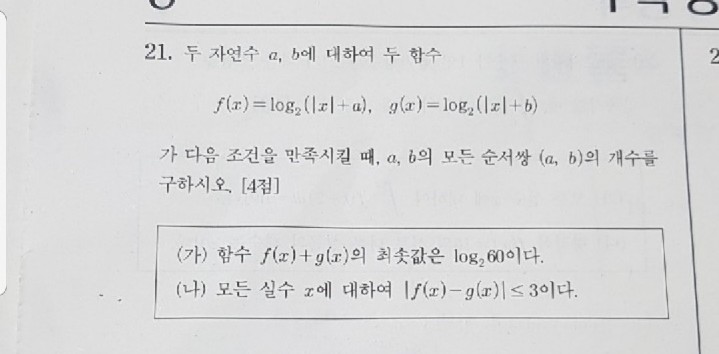 21. 두 자연수 a, b에 대하여 두 함수
f(x)=log₂(|x|+a), g(x)=log₂(|x|+b)
가 다음 조건을 만족시킬 때, a, b의 모든 순서쌍 (a, b)의 개수를
구하시오. [4점]
(가) 함수 f(x)+g(x)의 최솟값은 log₂60이다.
(나) 모든 실수 x에 대하여 |f(x)-g(x)|≤3이다.
2